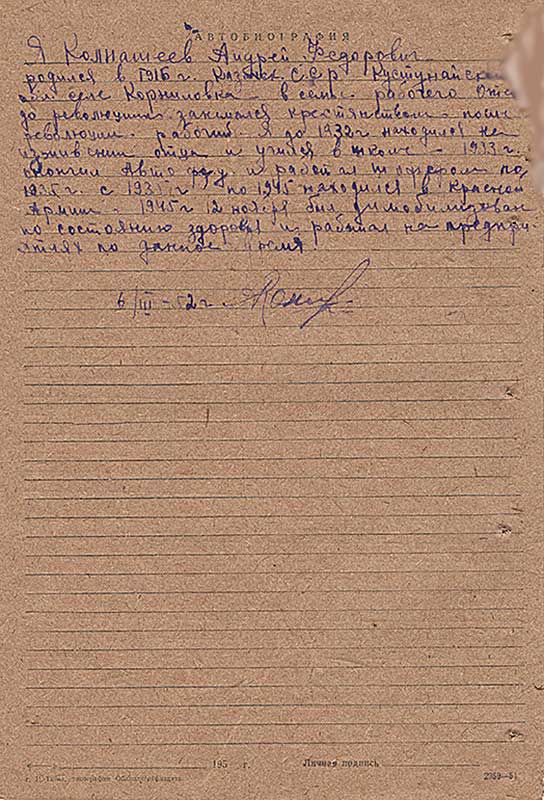 АВТОБИОГРАФИЯ
Я Колпащеев Андрей Федорович
родился в 1916 г. Казахск ССР Кустунайской
обл селе Корниловка в семье рабочего Отец
до революции занимался крестянством после
революции рабочий Я до 1932 г находился на
иждивении отца и учился в школе - 1933 г.
окончил Авто и работал шофером по
1935 г. с 1935 г по 1945 находился в Красной
Армии - 1945 г 12 ноября был димобилизован
по состоянию здоровя и работал на предпри-
ятиях по данное время.
6/III - 52 г.
195 г. Личная подпись
типография 2359—51